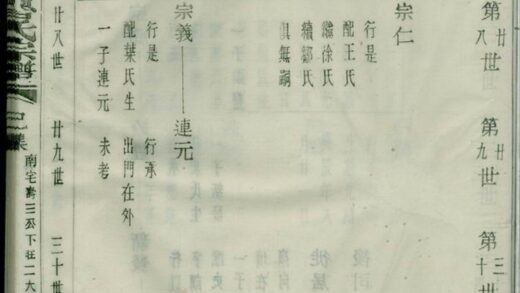 第廿八世 第廿九世 第三十世
宗仁
行是
配王氏
繼徐氏
續鄒氏
俱無嗣
宗義 連元
行是 行承
配葉氏生 出門在外
一子連元 未考
廿八世 廿九世 三十世
氏宗譜 集 南宅壽三公下二六